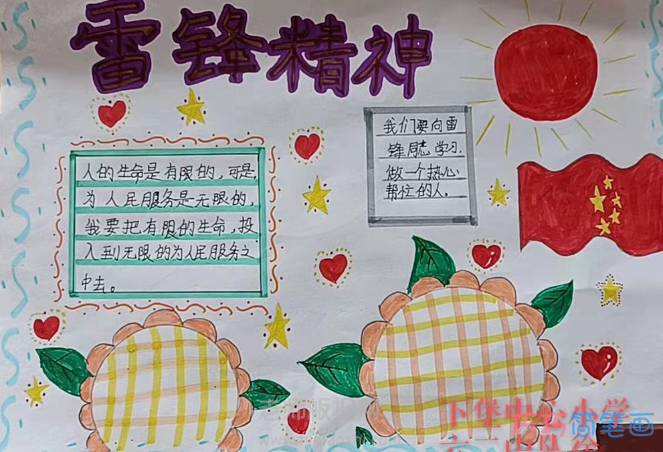 雷锋精神
人的生命是有限的，可是，
为人民服务是无限的，
我要把有限的生命，投
入到无限的为人民服务之
中去。
我们要向雷
锋同志学习，
做一个热心
帮忙的人。
下堡中心小学
简笔画